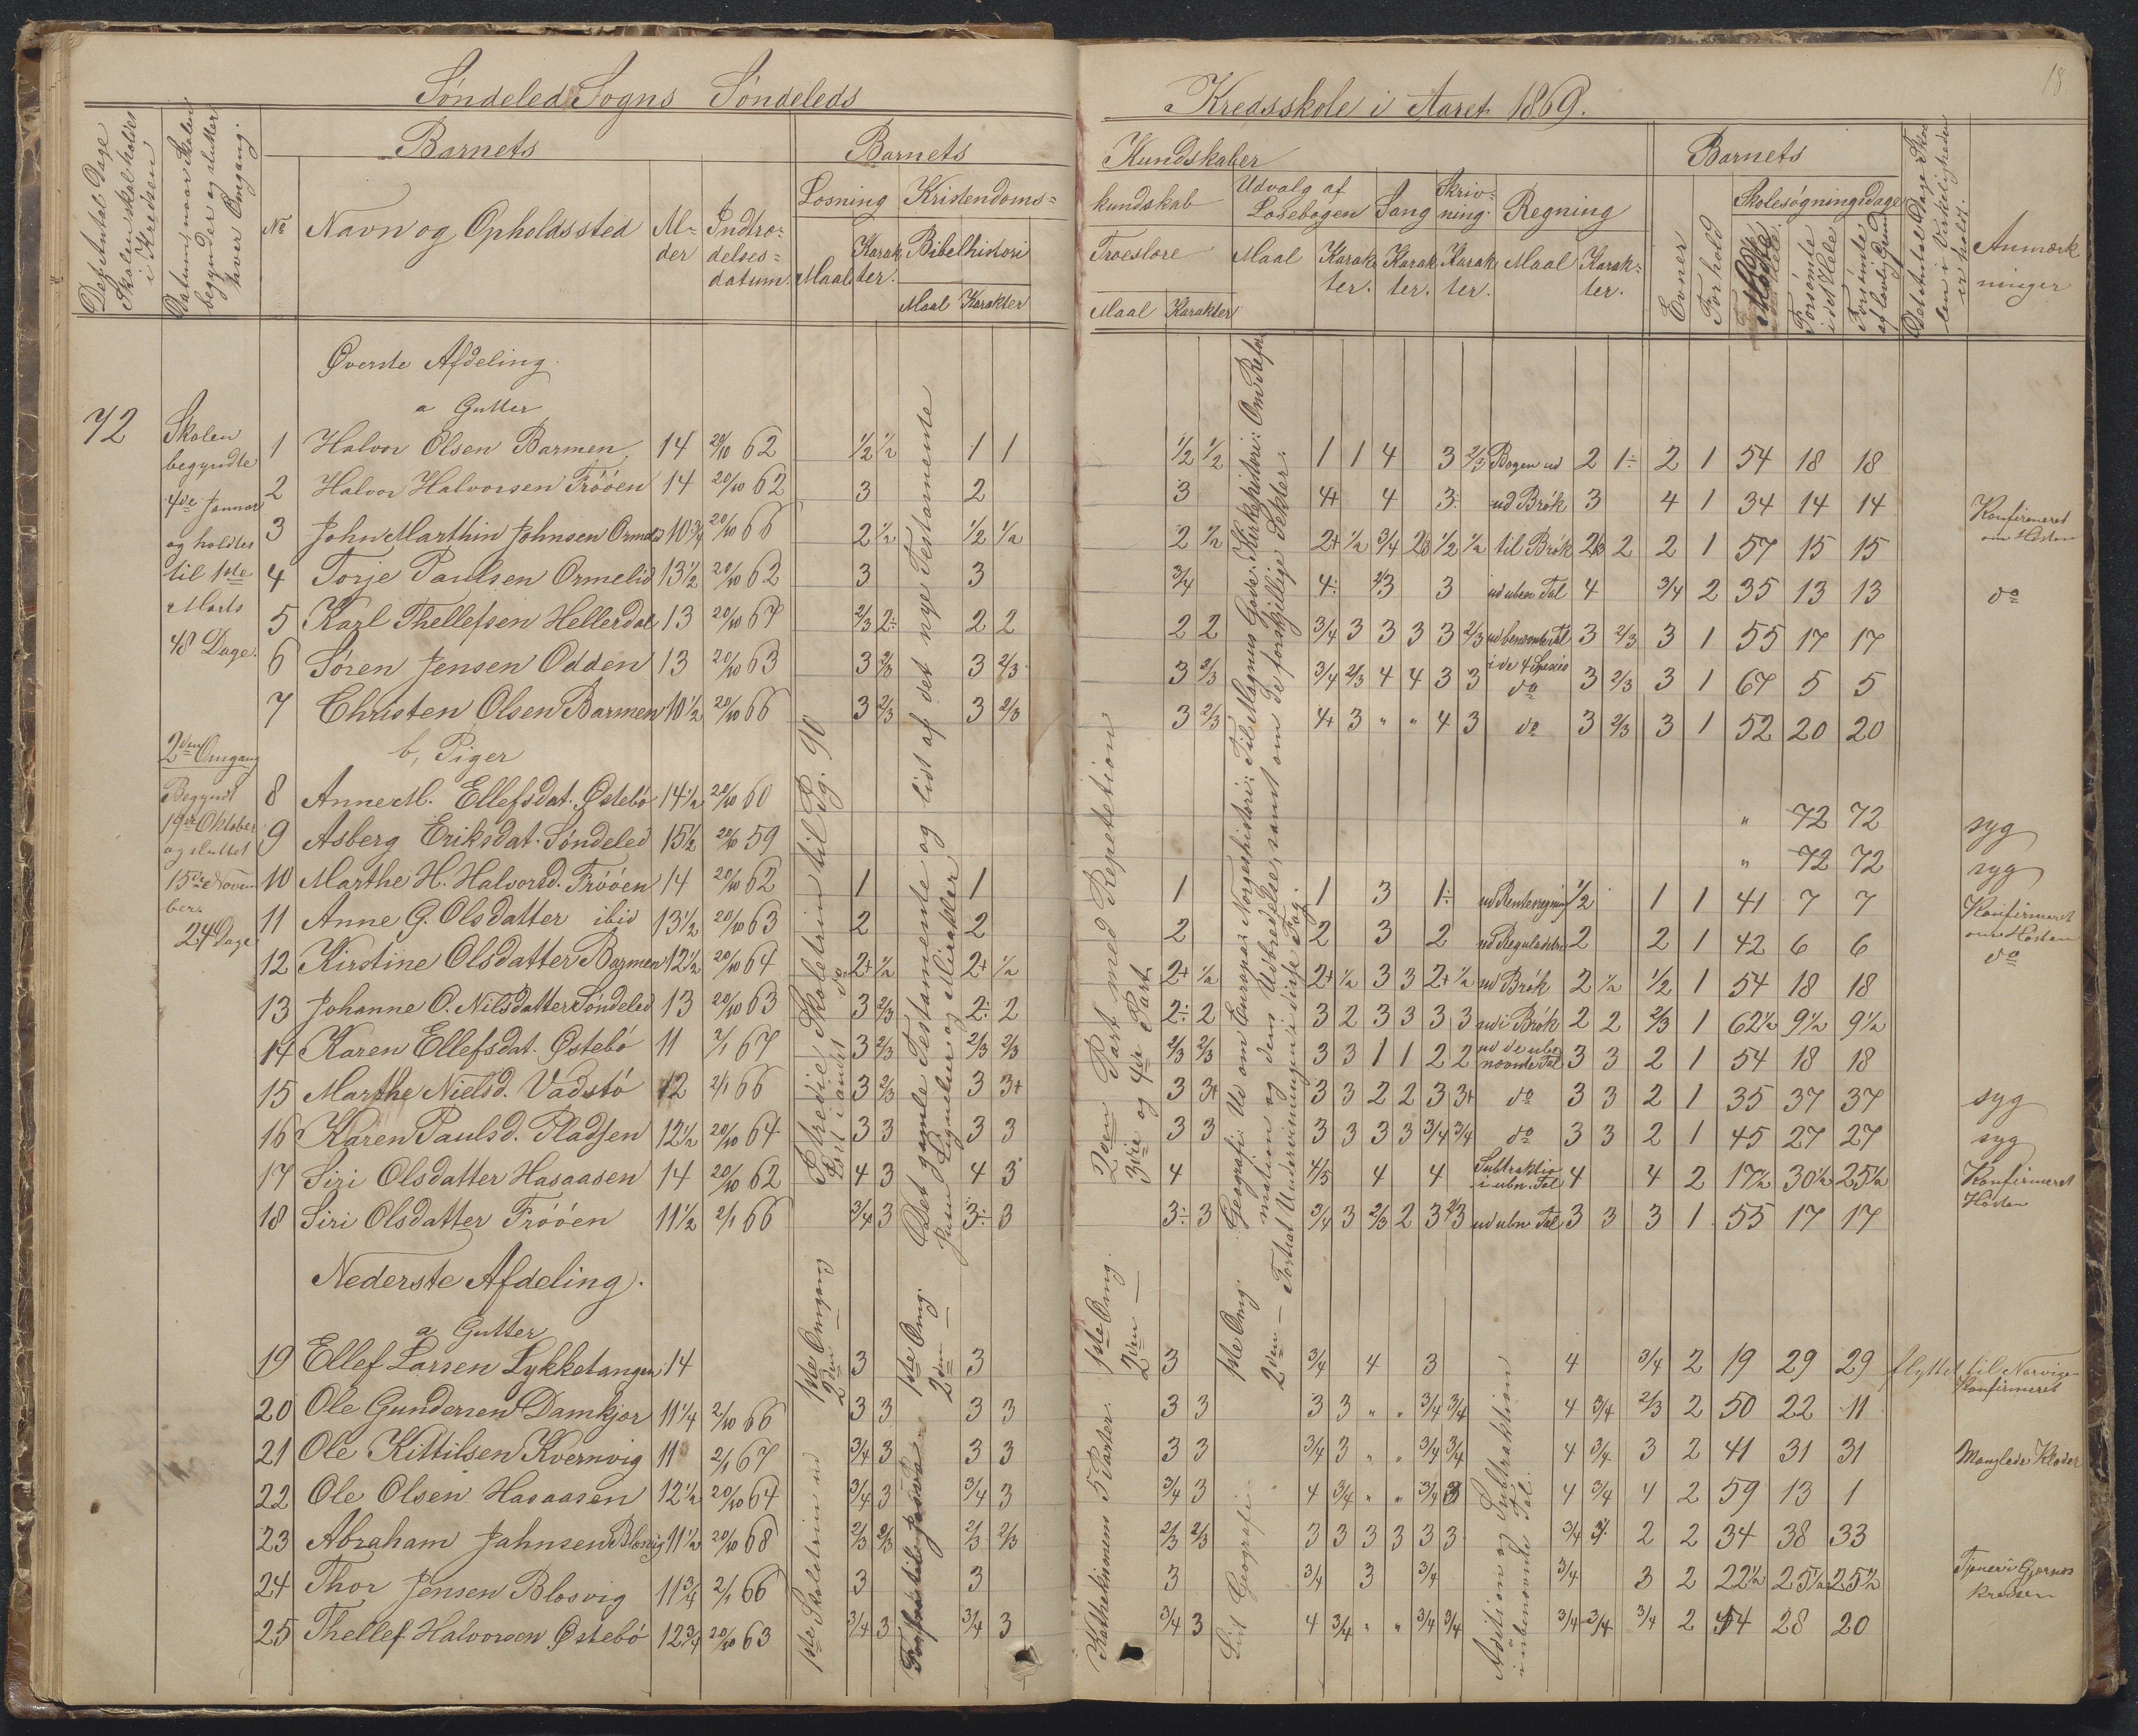 Söndeled Sogns Söndeleds Kredsskole i Aaret 1869.
18
Det Antal Dage Skolen skal holdes i Kredsen
Datum naar Skolen begynder og slutter hver Omgang.
Barnets
No
Navn og Opholdssted
Alder
Indtrædelses=datum.
Barnets Kundskaber
Læsning
Maal
Karakter.
Kristendoms= kundskab
Bibelhistori
Maal Karakter
Troeslære
Maal Karakter
Udvalg af Læsebogen
Maal Karakter.
Sang
Karakter.
Skrivning.
Karakter.
Regning
Maal Karakter.
Barnets
Evner
Forhold
Skolesøgningsdage
Mödte
Forsömte i det Hele
Forsömte af lovlig Grund
Det Antal Dage Skolen i Virkeligheden er holdt.
Anmærkninger
72
Skolen
begyndte
4de Januar
og holdtes
til 1ste
Marts
48 Dage.
2den Omgang
Begyndt
19de Oktober
og sluttet
15de November.
24 Dage
Øverste Afdeling.
a Gutter
1 Halvor Olsen Barmen, 14 20/10 62 1/2 1/2 1 1 1/2 1/2 1 1 4 3 2/3 Bogen ud 2 1÷ 2 1 54 18 18
2 Halvor Halvorsen Fröóen 14 20/10 62 3 2 3 4+ 4 3÷ ud Brök 3 4 1 34 14 14 Konfirmeret om Hösten
3 John Marthin Johnsen Ormelid 10 3/4 20/10 66 2 1/2 1/2 1/2 2 1/2 2+ 1/2 3/4 1/2 1/2 til Brök 2 2 1 57 15 15
4 Torje Paulsen Ormelid 13 1/2 20/10 62 3 3 3/4 4÷ 3 3 ud ubn Tal 4 3/4 2 35 13 13 do
5 Karl Thellefsen Hellerdal 13 20/10 67 2/3 2÷ 2 2 2 2 3/4 3 3 3 3 2/3 ud benævnte Tal i de 4 Species 3 2/3 3 1 55 17 17
6 Sören Jensen Odden 13 20/10 63 3 2/3 3 2/3 3 2/3 3/4 2/3 4 4 3 3 do 3 2/3 3 1 67 5 5
7 Christen Olsen Barmen 10 1/2 20/10 66 3 2/3 3 2/3 3 2/3 4+ 3 " " 4 3 do 3 2/3 3 1 52 20 20
b, Piger
8 Anne M. Ellefsdat. Østebö 14 1/2 20/10 60 " 72 72 syg
9 Asberg Eriksdat. Söndeled 15 1/2 59 " 72 72 syg
10 Marthe H. Halvorsd. Fröóen 14 20/10 62 1 1 1 1 3 1÷ ud Renteregning 1/2 1 1 41 7 7 Konfirmeret om Hösten
11 Anne G. Olsdatter ibid 13 1/2 20/10 63 2 2 2 2 3 2 ud Reguladetri 2 2 1 42 6 6 do
12 Kirstine Olsdatter Barmen 12 1/2 20/10 64 2+ 1/2 2+ 1/2 2+ 1/2 2+ 1/2 3 3 2+ 1/2 ud Brök 2 1/2 1/2 1 54 18 18
13 Johanne O. Nilsdatter Söndeled 13 20/10 63 3 2/3 2÷ 2 2÷ 2 3 2 3 3 3 3 ud i Brök 2 2 2/3 1 62 1/2 9 1/2 9 1/2
14 Karen Ellefsdat. Østebö 11 2/1 67 3 2/3 2/3 2/3 2/3 2/3 3 3 1 1 2 2 ud de ubenævnte Tal 3 3 2 1 54 18 18
15 Marthe Nielsd. Vadstö 12 2/1 66 3 2/3 3 3+ 3 3+ 3 3 2 2 3 3+ do 3 3 2 1 35 37 37 syg
16 Karen Paulsd. Pladsen 12 1/2 20/10 64 3 3 3 3 3 3 3 3 3 3 3/4 3/4 do 3 3 2 1 45 27 27 syg
17 Siri Olsdatter Hasaasen 14 20/10 62 4 3 4 3 4 4/5 4 4 Subtraktio i ubn. Tal 4 4 2 17 1/2 30 1/2 25 1/2 Konfirmeret Hösten
18 Siri Olsdatter Fröóen 11 1/2 2/1 66 3/4 3 3÷ 3 3÷ 3 3/4 3 2/3 2 3 2/3 ud ubn Tal 3 3 3 1 55 17 17
Nederste Afdeling.
a Gutter
19 Ellef Larsen Lykketangen 14 3 3 3 3/4 4 3 4 3/4 2 19 29 29 flyttet til Narvigen Konfirmeret
20 Ole Gundersen Damkjær 11 1/4 2/10 66 3 3 3 3 3 3 3 3 " " 3/4 3/4 4 3/4 2/3 2 50 22 11
21 Ole Kittilsen Kvernvig 11 2/1 67 3/4 3 3 3 3 3 3/4 3 " " 3/4 3/4 4 3/4 3 2 41 31 31 Manglede Klæder
22 Ole Olsen Hasaasen 12 1/2 20/10 64 3/4 3 3/4 3 3/4 3 4 3/4 " " 3/4 3 4 3/4 4 2 59 13 1
23 Abraham Jahnsen Blosvig 11 1/2 20/10 68 2/3 2/3 2/3 2/3 2/3 2/3 3 3 3 3 3 3 3/4 2 2 34 38 33
24 Thor Jensen Blosvig 11 3/4 2/1 66 3 3 3 3/4 3 3/4 3/4 3 2 22 1/2 25 1/2 25 1/2 Tjener i Gjernes kredsen
25 Thellef Halvorsen Østebö 12 3/4 20/10 63 3/4 3 3/4 3 3/4 3 4 3/4 " " 3/4 3/4 3/4 3/4 3/4 2 44 28 20
1ste Omgang Et tredie Skoletrin til Pg. 90
2den — Fort i andet do
1ste Omg. Det gamle Testamente og lidt af det nye Testamente
2den — Jesu Lignelser og Mirakler
1ste Omg. 2den Part med Repetetion
2den — 3die og 4de Part.
1ste Omg. Geografi: Ud om Europa: Norgeshistori: Til Magnus Gode: Kirkehistori: Om Reformation og dens Udbredelse, samt om de forskjellige Sekter.
2den — Fortsat Undervisningen i disse Fag.
1ste Skoletrin ud
Kathekismens 5 Parter.
Lidt Geografi.
Adition og Subtraktion i ubenævnte Tal.